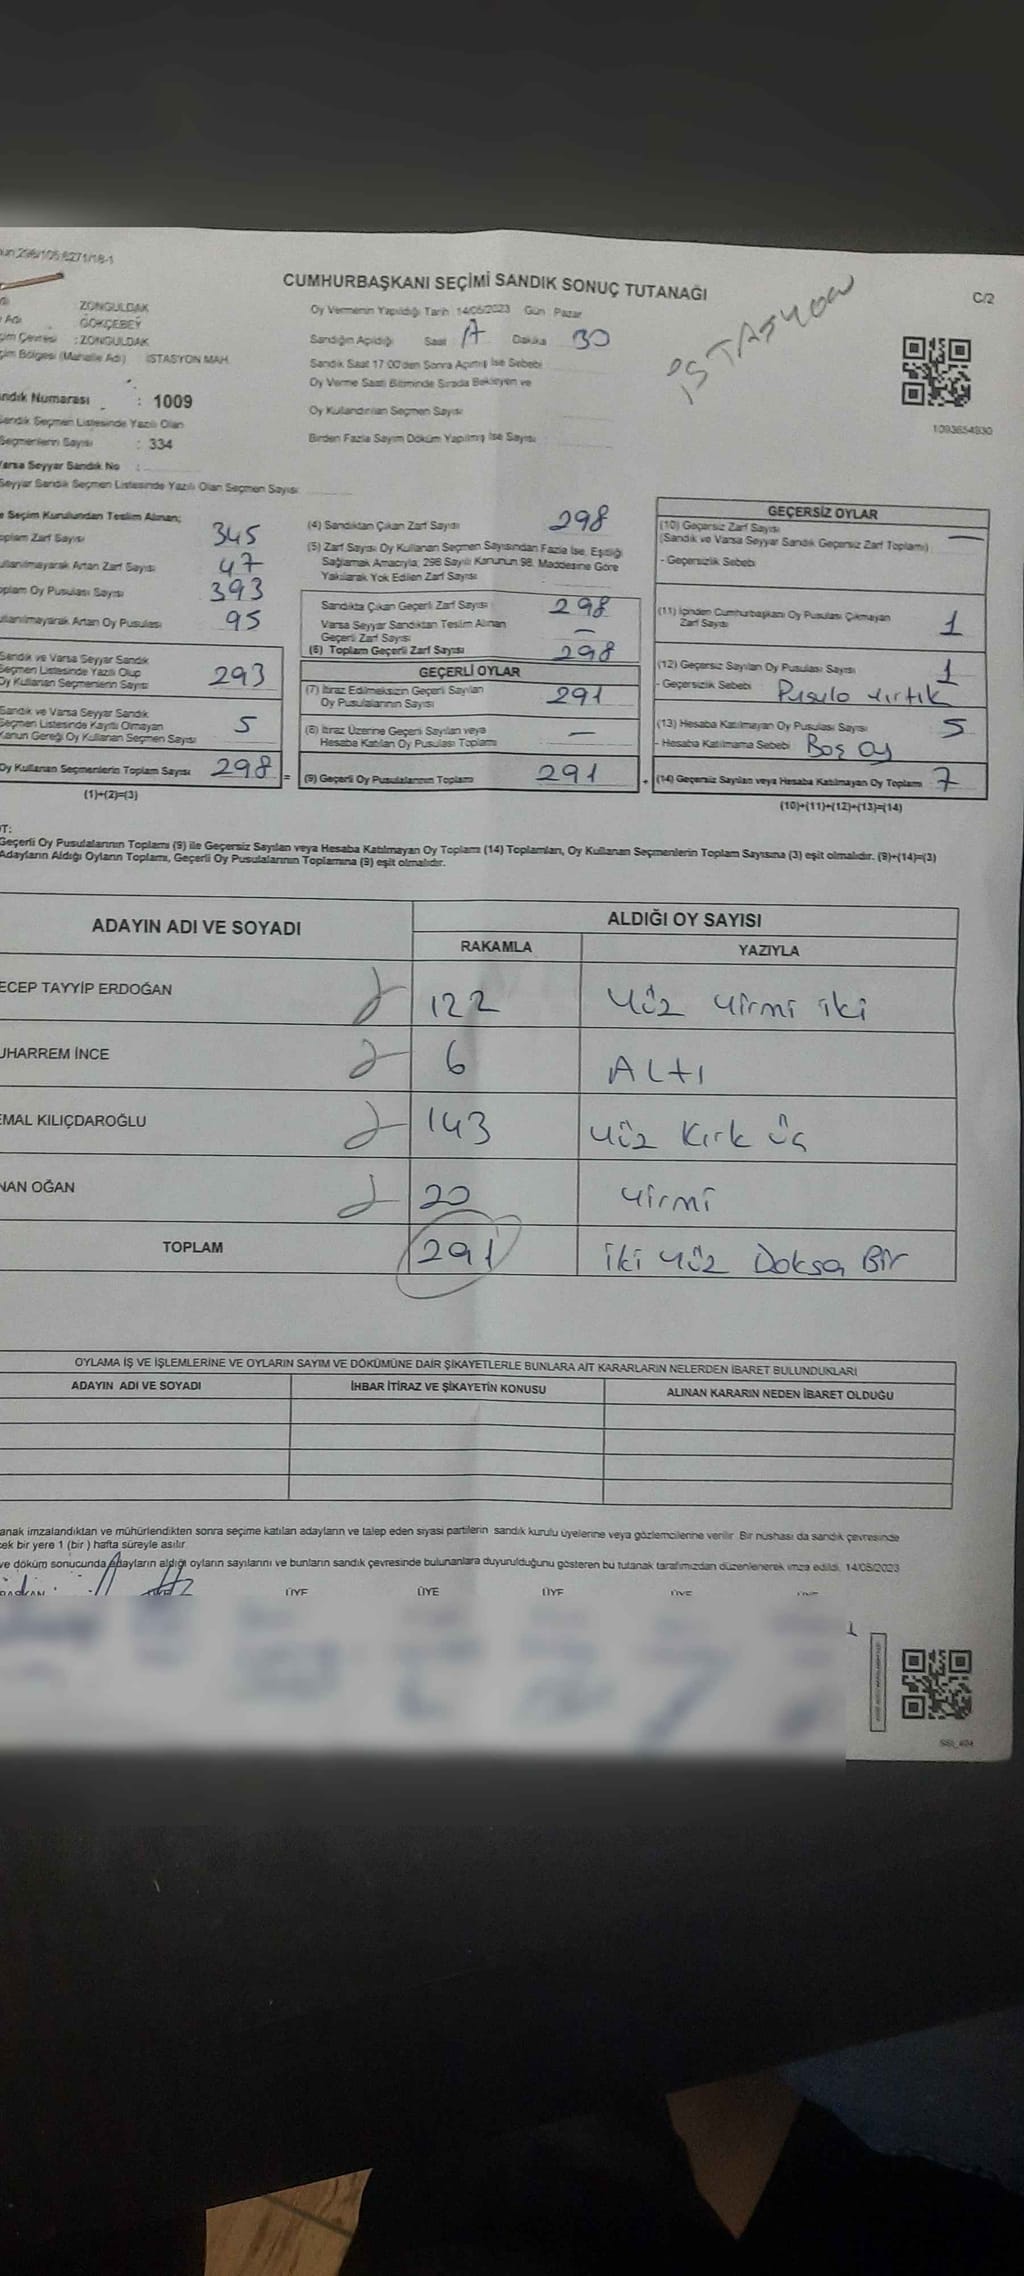 298/105;6271/18-1
CUMHURBAŞKANI SEÇİMİ SANDIK SONUÇ TUTANAĞI
C/2
İSTASYON
ZONGULDAK
Adı GÖKÇEBEY
Çevresi : ZONGULDAK
Bölgesi (Mahalle Adı) İSTASYON MAH.
Oy Vermenin Yapıldığı Tarih 14/05/2023 Gün Pazar
Sandığın Açıldığı Saat Dakika 30
Sandık Saat 17:00'den Sonra Açılmış İse Sebebi
Oy Verme Saati Bitiminde Sırada Bekleyen ve
Oy Kullandırılan Seçmen Sayısı
Birden Fazla Sayım Döküm Yapılmış İse Sayısı
1093654930
ndık Numarası : 1009
Sandık Seçmen Listesinde Yazılı Olan
Seçmenlerin Sayısı : 334
Varsa Seyyar Sandık No :
Seyyar Sandık Seçmen Listesinde Yazılı Olan Seçmen Sayısı
e Seçim Kurulundan Teslim Alınan;
oplam Zarf Sayısı 345
ullanılmayarak Artan Zarf Sayısı 47
oplam Oy Pusulası Sayısı 393
ullanılmayarak Artan Oy Pusulası 95
Sandık ve Varsa Seyyar Sandık
Seçmen Listesinde Yazılı Olup
Oy Kullanan Seçmenlerin Sayısı 293
Sandık ve Varsa Seyyar Sandık
Seçmen Listesinde Kayıtlı Olmayan
Kanun Gereği Oy Kullanan Seçmen Sayısı 5
Oy Kullanan Seçmenlerin Toplam Sayısı 298 =
(1)+(2)=(3)
(4) Sandıktan Çıkan Zarf Sayısı 298
(5) Zarf Sayısı Oy Kullanan Seçmen Sayısından Fazla İse, Eşitliği
Sağlamak Amacıyla, 298 Sayılı Kanunun 98. Maddesine Göre
Yakılarak Yok Edilen Zarf Sayısı
Sandıkta Çıkan Geçerli Zarf Sayısı 298
Varsa Seyyar Sandıktan Teslim Alınan
Geçerli Zarf Sayısı —
(6) Toplam Geçerli Zarf Sayısı 298
GEÇERLİ OYLAR
(7) İtiraz Edilmeksizin Geçerli Sayılan
Oy Pusulalarının Sayısı 291
(8) İtiraz Üzerine Geçerli Sayılan veya
Hesaba Katılan Oy Pusulası Toplamı —
(9) Geçerli Oy Pusulalarının Toplamı 291 +
GEÇERSİZ OYLAR
(10) Geçersiz Zarf Sayısı
(Sandık ve Varsa Seyyar Sandık Geçersiz Zarf Toplamı) —
- Geçersizlik Sebebi
(11) İçinden Cumhurbaşkanı Oy Pusulası Çıkmayan
Zarf Sayısı 1
(12) Geçersiz Sayılan Oy Pusulası Sayısı 1
- Geçersizlik Sebebi Pusula yırtık
(13) Hesaba Katılmayan Oy Pusulası Sayısı 5
- Hesaba Katılmama Sebebi Boş oy
(14) Geçersiz Sayılan veya Hesaba Katılmayan Oy Toplamı 7
(10)+(11)+(12)+(13)=(14)
OT:
Geçerli Oy Pusulalarının Toplamı (9) ile Geçersiz Sayılan veya Hesaba Katılmayan Oy Toplamı (14) Toplamları, Oy Kullanan Seçmenlerin Toplam Sayısına (3) eşit olmalıdır. (9)+(14)=(3)
Adayların Aldığı Oyların Toplamı, Geçerli Oy Pusulalarının Toplamına (9) eşit olmalıdır.
ADAYIN ADI VE SOYADI
ALDIĞI OY SAYISI
RAKAMLA YAZIYLA
ECEP TAYYİP ERDOĞAN 122 Yüz Yirmi iki
UHARREM İNCE 6 ALTI
EMAL KILIÇDAROĞLU 143 Yüz Kırk üç
NAN OĞAN 20 Yirmi
TOPLAM 291 iki Yüz Doksa Bir
OYLAMA İŞ VE İŞLEMLERİNE VE OYLARIN SAYIM VE DÖKÜMÜNE DAİR ŞİKAYETLERLE BUNLARA AİT KARARLARIN NELERDEN İBARET BULUNDUKLARI
ADAYIN ADI VE SOYADI İHBAR İTİRAZ VE ŞİKAYETİN KONUSU ALINAN KARARIN NEDEN İBARET OLDUĞU
anak imzalandıktan ve mühürlendikten sonra seçime katılan adayların ve talep eden siyasi partilerin sandık kurulu üyelerine veya gözlemcilerine verilir. Bir nüshası da sandık çevresinde
ek bir yere 1 (bir) hafta süreyle asılır.
ve döküm sonucunda adayların aldığı oyların sayılarını ve bunların sandık çevresinde bulunanlara duyurulduğunu gösteren bu tutanak tarafımızdan düzenlenerek imza edildi. 14/05/2023
BAŞKAN ÜYE ÜYE ÜYE ÜYE ÜYE